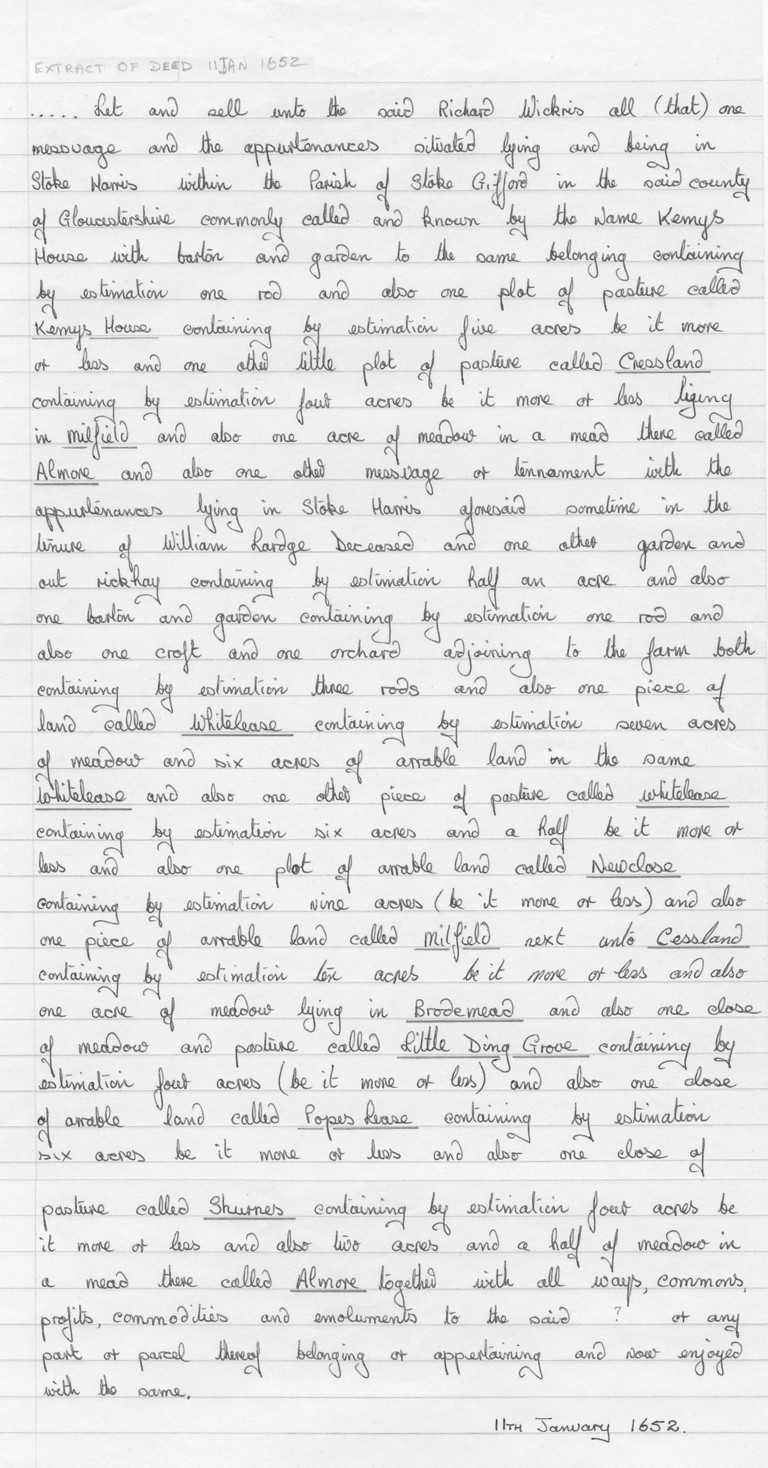 EXTRACT OF DEED 11 JAN 1652
..... Let and sell unto the said Richard Wickris all (that) one
messuage and the appurtenances situated lying and being in
Stoke Harris within the Parish of Stoke Gifford in the said county
of Gloucestershire commonly called and known by the Name Kemys
House with barton and garden to the same belonging containing
by estimation one rod and also one plot of pasture called
Kemys House containing by estimation five acres be it more
or less and one other little plot of pasture called Cressland
containing by estimation four acres be it more or less ligeng
in Milfield and also one acre of meadow in a mead there called
Almore and also one other messuage or tennament with the
appurtenances lying in Stoke Harris aforesaid sometime in the
tenure of William Lardge Deceased and one other garden and
out rickhay containing by estimation half an acre and also
one barton and garden containing by estimation one rod and
also one croft and one orchard adjoining to the farm both
containing by estimation three rods and also one piece of
land called Whitelease containing by estimation seven acres
of meadow and six acres of arrable land in the same
Whitelease and also one other piece of pasture called Whitelease
containing by estimation six acres and a half be it more or
less and also one plot of arrable land called Newclose
containing by estimation nine acres (be it more or less) and also
one piece of arrable land called Milfield next unto Cessland
containing by estimation ten acres be it more or less and also
one acre of meadow lying in Brodemead and also one close
of meadow and pasture called Little Ding Grove containing by
estimation four acres (be it more or less) and also one close
of arrable land called Popes Lease containing by estimation
six acres be it more or less and also one close of
pasture called Shurnes containing by estimation four acres be
it more or less and also two acres and a half of meadow in
a mead there called Almore together with all ways, commons,
profits, commodities and emoluments to the said ? or any
part or parcel thereof belonging or appertaining and now enjoyed
with the same.
11TH January 1652.